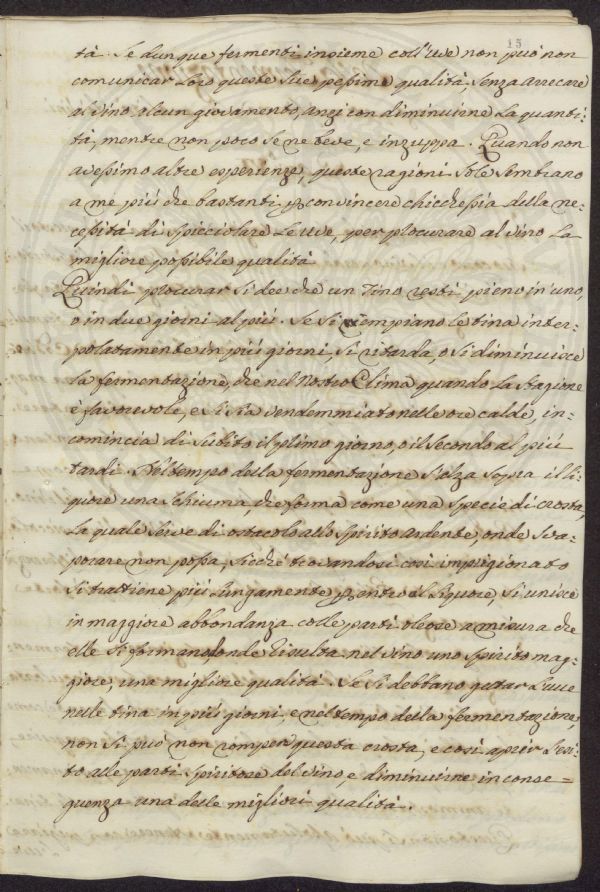 15
tà. Se dunque fermenti insieme coll'uve non può non
comunicar loro queste sue pessime qualità, senza arrecare
al vino alcun giovamento, anzi con diminuirne la quanti-
tà, mentre non poco se ne beve, e inzuppa. Quando non
avessimo altre esperienze, queste ragioni sole sembrano
a me più che bastanti p convincere chicchessia della ne-
cessità di spicciolare le uve, per procurare al vino la
migliore possibile qualità.
Quindi procurar si dee che un Tino resti pieno in uno,
o in due giorni al più. Se si riempiano le tina inter-
polatamente in più giorni, si ritarda, o si diminuisce
la fermentazione, che nel nostro Clima quando la stagione
è favorevole, e si sia vendemmiato nelle ore calde, in-
comincia di subito il primo giorno, o il secondo al più
tardi. Nel tempo della fermentazione s'alza sopra il li-
quore una schiuma, che forma come una specie di crosta,
la quale serve di ostacolo allo spirito ardente, onde sva-
porare non possa, sicché trovandosi così imprigionato
si trattiene più lungamente p entro al liquore, si unisce
in maggiore abbondanza colle parti oleose a misura che
elle si formano, onde risulta nel vino uno spirito mag-
giore, una migliore qualità. Se si debbano gettar l'uve
nelle tina in più giorni, e nel tempo della fermentazione,
non si può non romper questa crosta, e così aprir l'esi-
to alle parti spiritose del vino, e diminuirne in conse-
guenza una delle migliori qualità.